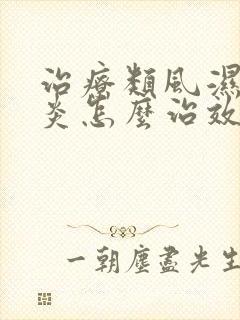 治療類風濕
炎怎麼治效
一朝塵盡先生